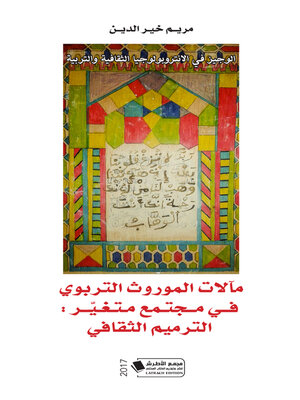 مريم خير الدين
الوجيز في الإنتروبولوجيا الثقافية والتربية
وهب لنا من لدنك
رحمة إنك أنت
الوهاب
مآلات الموروث التربوي
في مجتمع متغيّر :
الترميم الثقافي
2017
مجمع الأطرش
LATRACH EDITION